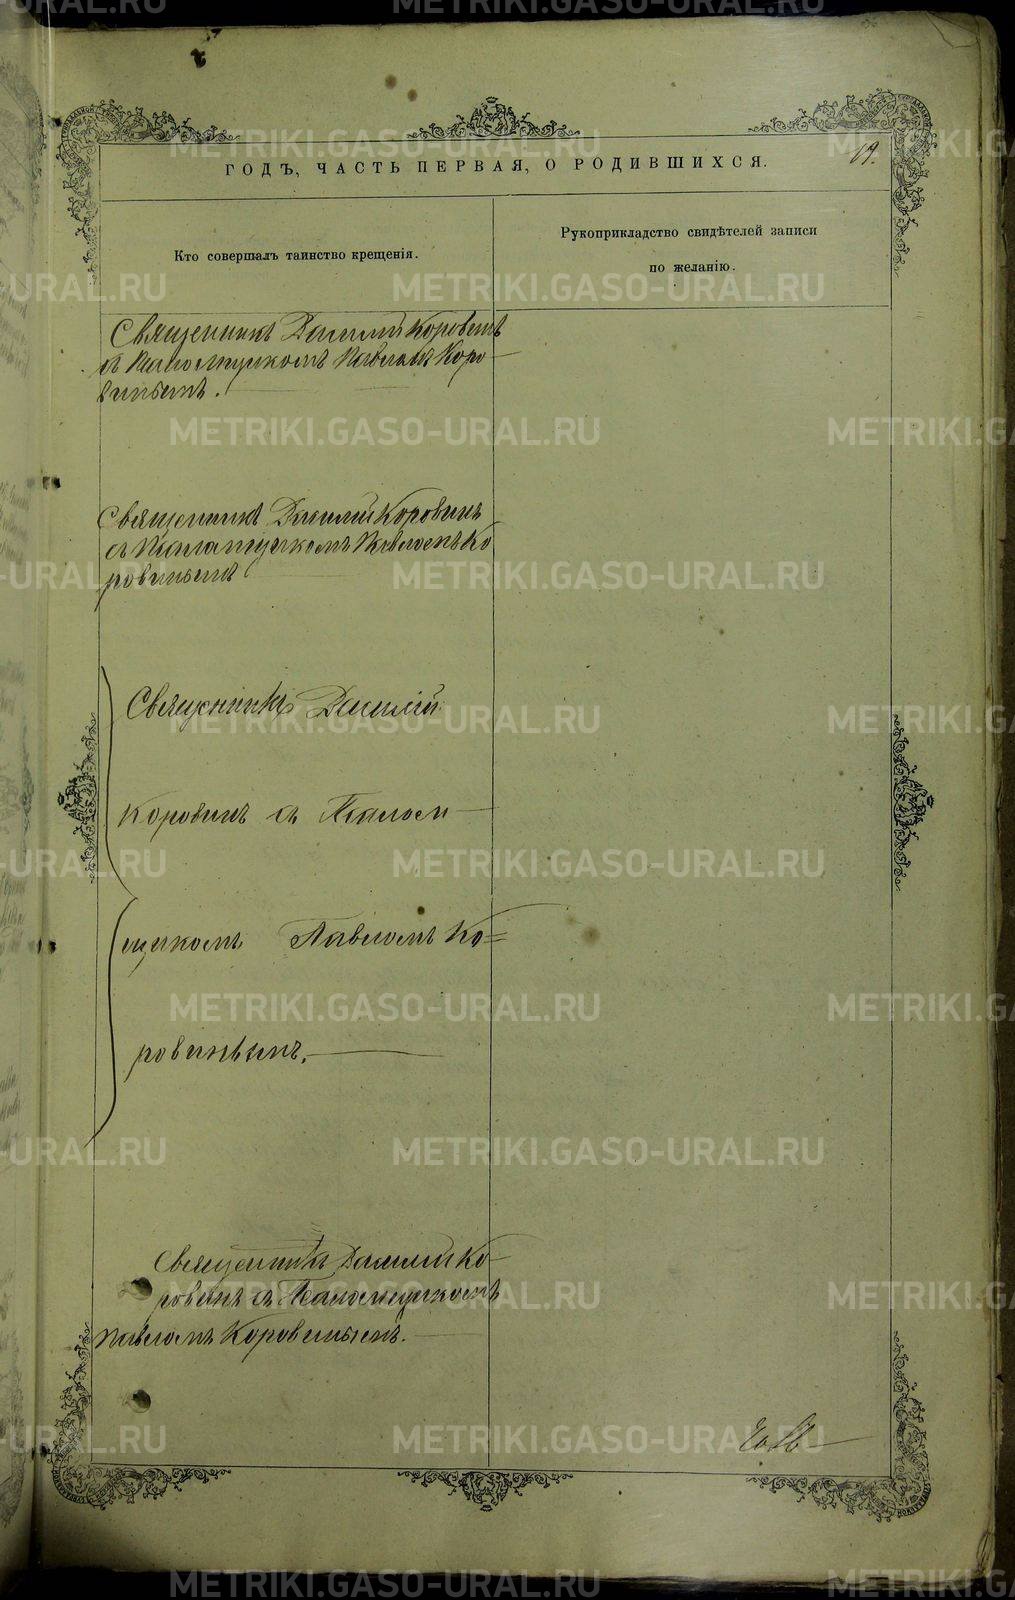 ГОДЪ, ЧАСТЬ ПЕРВАЯ, О РОДИВШИХСЯ.
69.
Кто совершалъ таинство крещенія.
Рукоприкладство свидѣтелей записи
по желанію.
Священникъ Василій Коровинъ
съ Псаломщикомъ Павломъ Коро-
винымъ.
Священникъ Василій Коровинъ
съ Псаломщикомъ Павломъ Ко
ровинымъ
Священникъ Василій
Коровинъ съ Псалом-
щикомъ Павломъ Ко=
ровинымъ.
Священникъ Василій Ко-
ровинъ съ Псаломщикомъ
Павломъ Коровинымъ.
METRIKI.GASO-URAL.RU